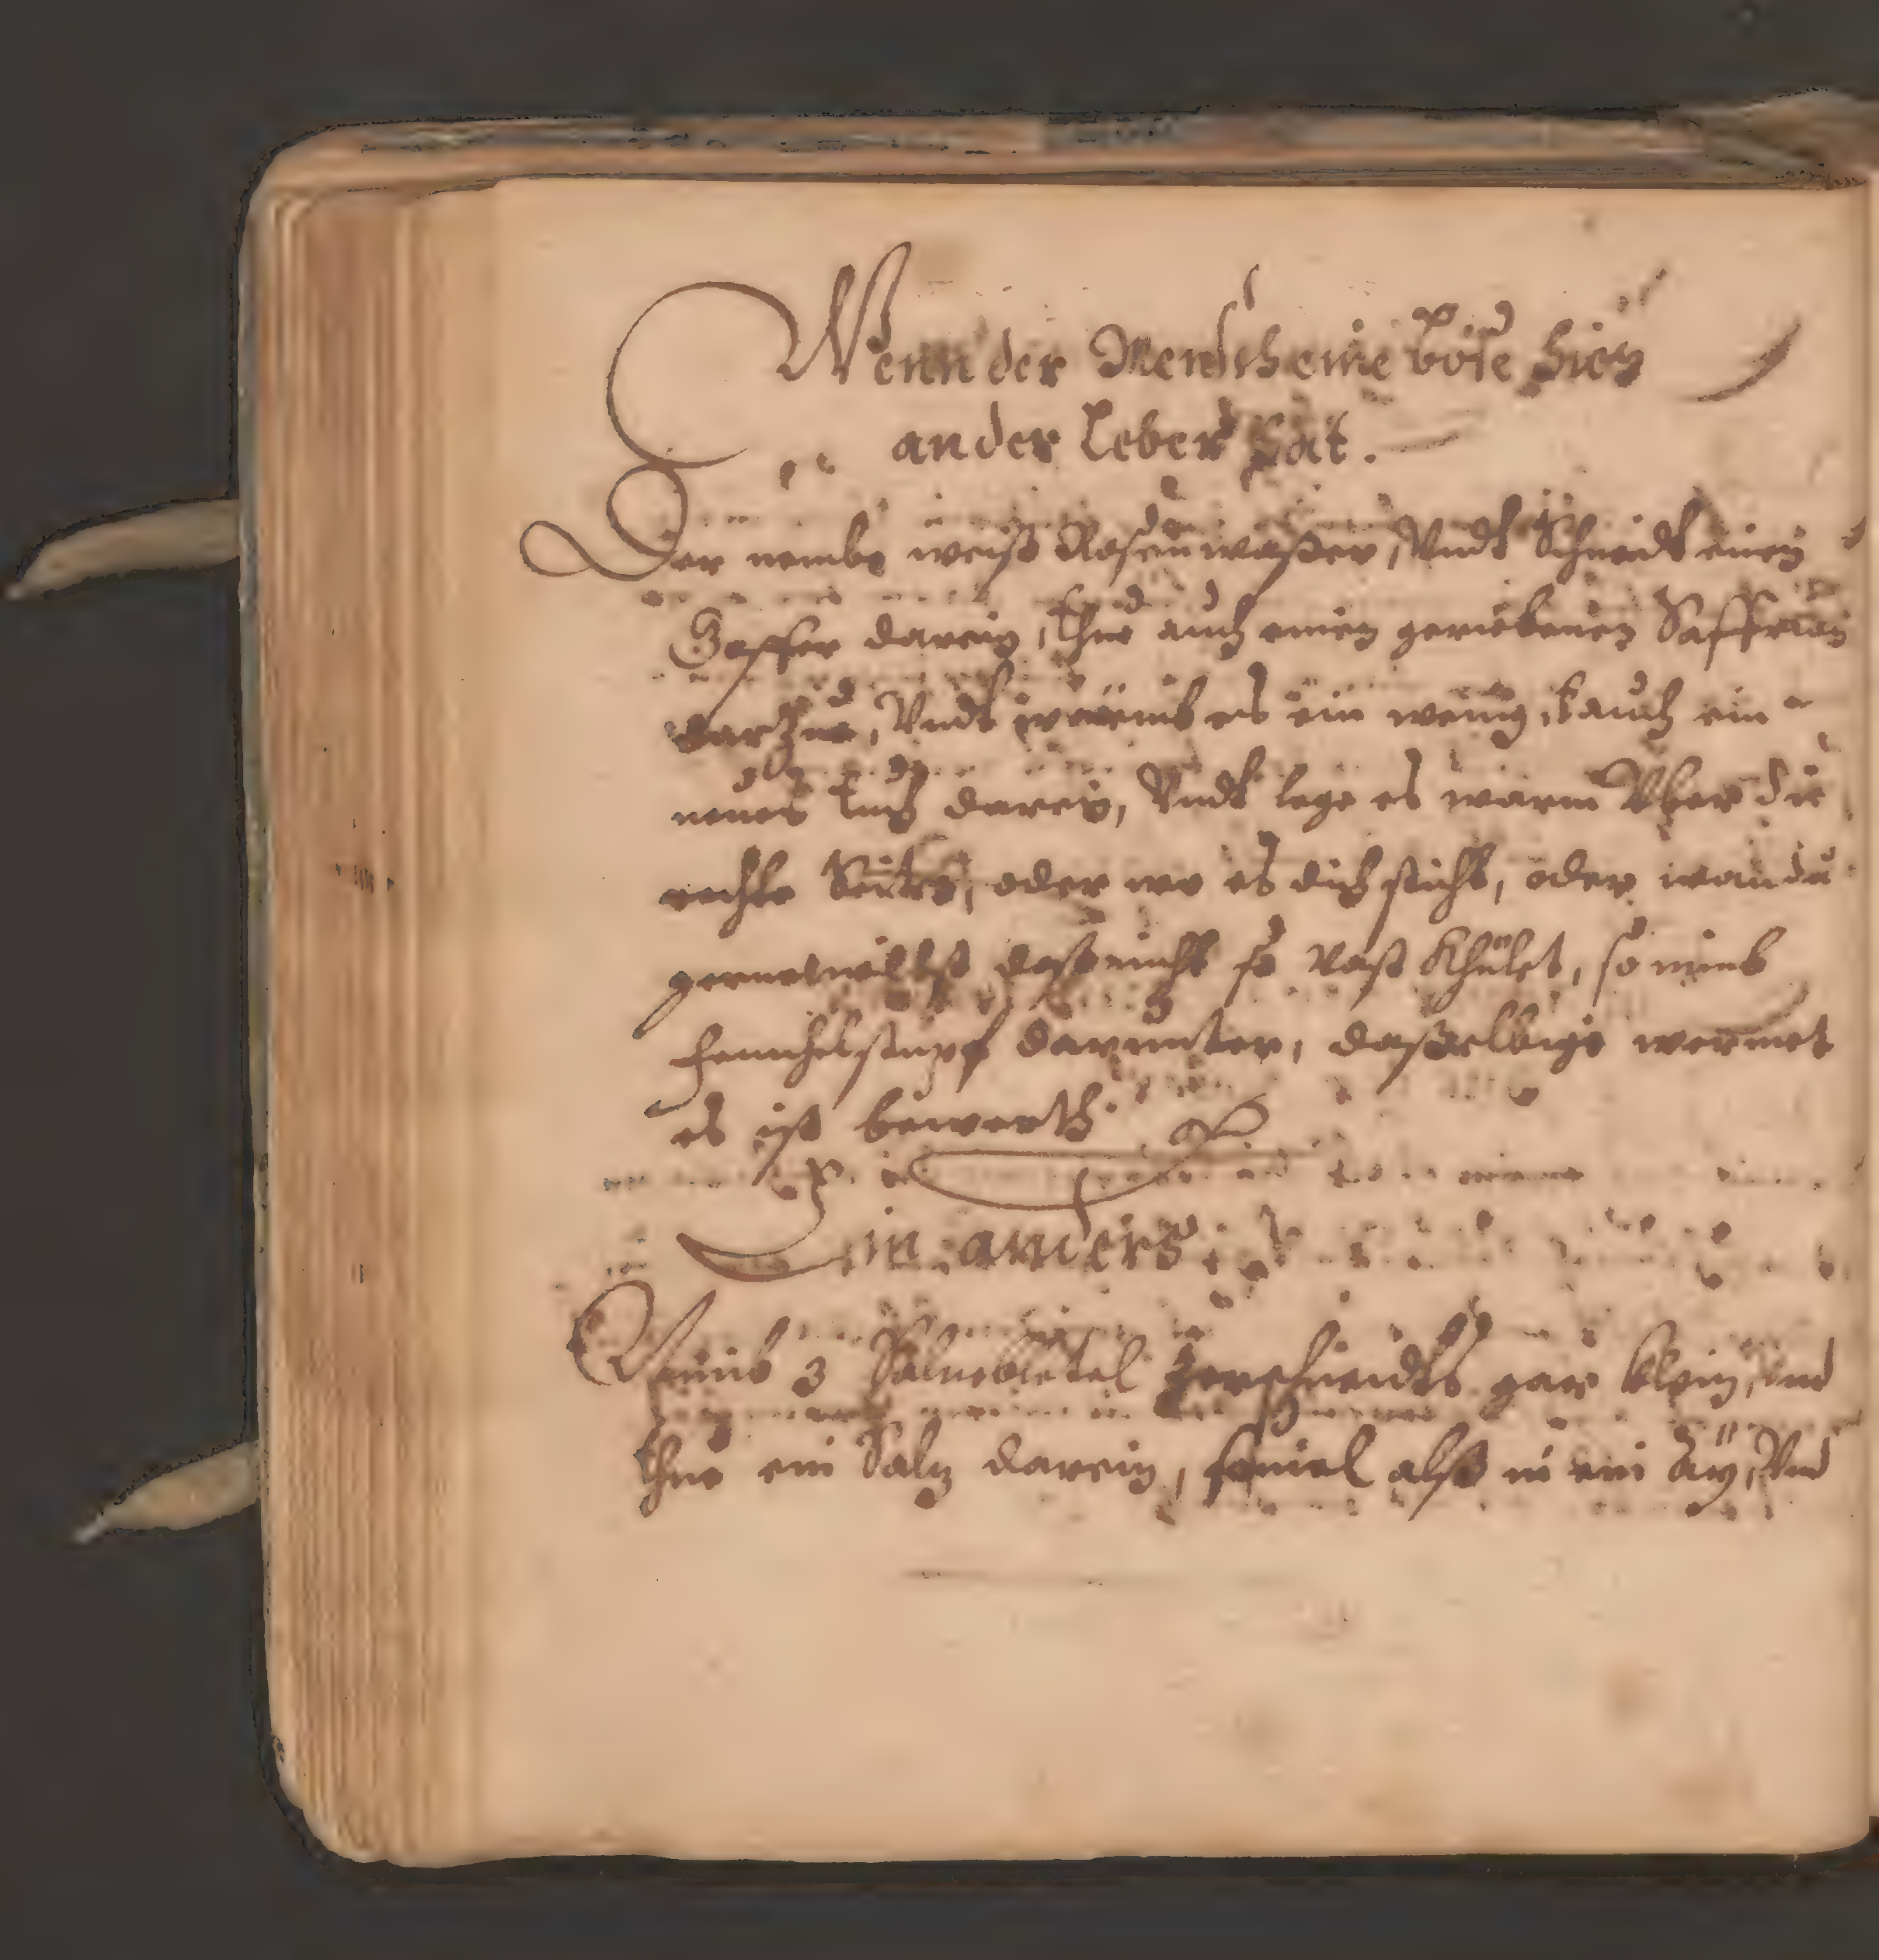 Wenn der Mensch eine böse Hicz
an der Leber Hat.
Der nembe weiß Rosenwaßer, Vndt Schneidt einen
Gaffer darein, thue auch einen geriebenen Saffran
darzue, Vndt wermb es ein wenig, tauch ein
neues tuch darein, Vndt lege es warm Vber die
rechte Seiten, oder wo es dich sticht, oder wan du
gerne willst daß nicht so vast khület, so nimb
fenichelstupf darunter, daßelbige wermet
es ist bewerth.
Ein anders.
Nimb 3 Saluebletel Zerschneidts gar klein, vnd
thue ein Salz darein, souiel alß in ein Aÿ, Vnd